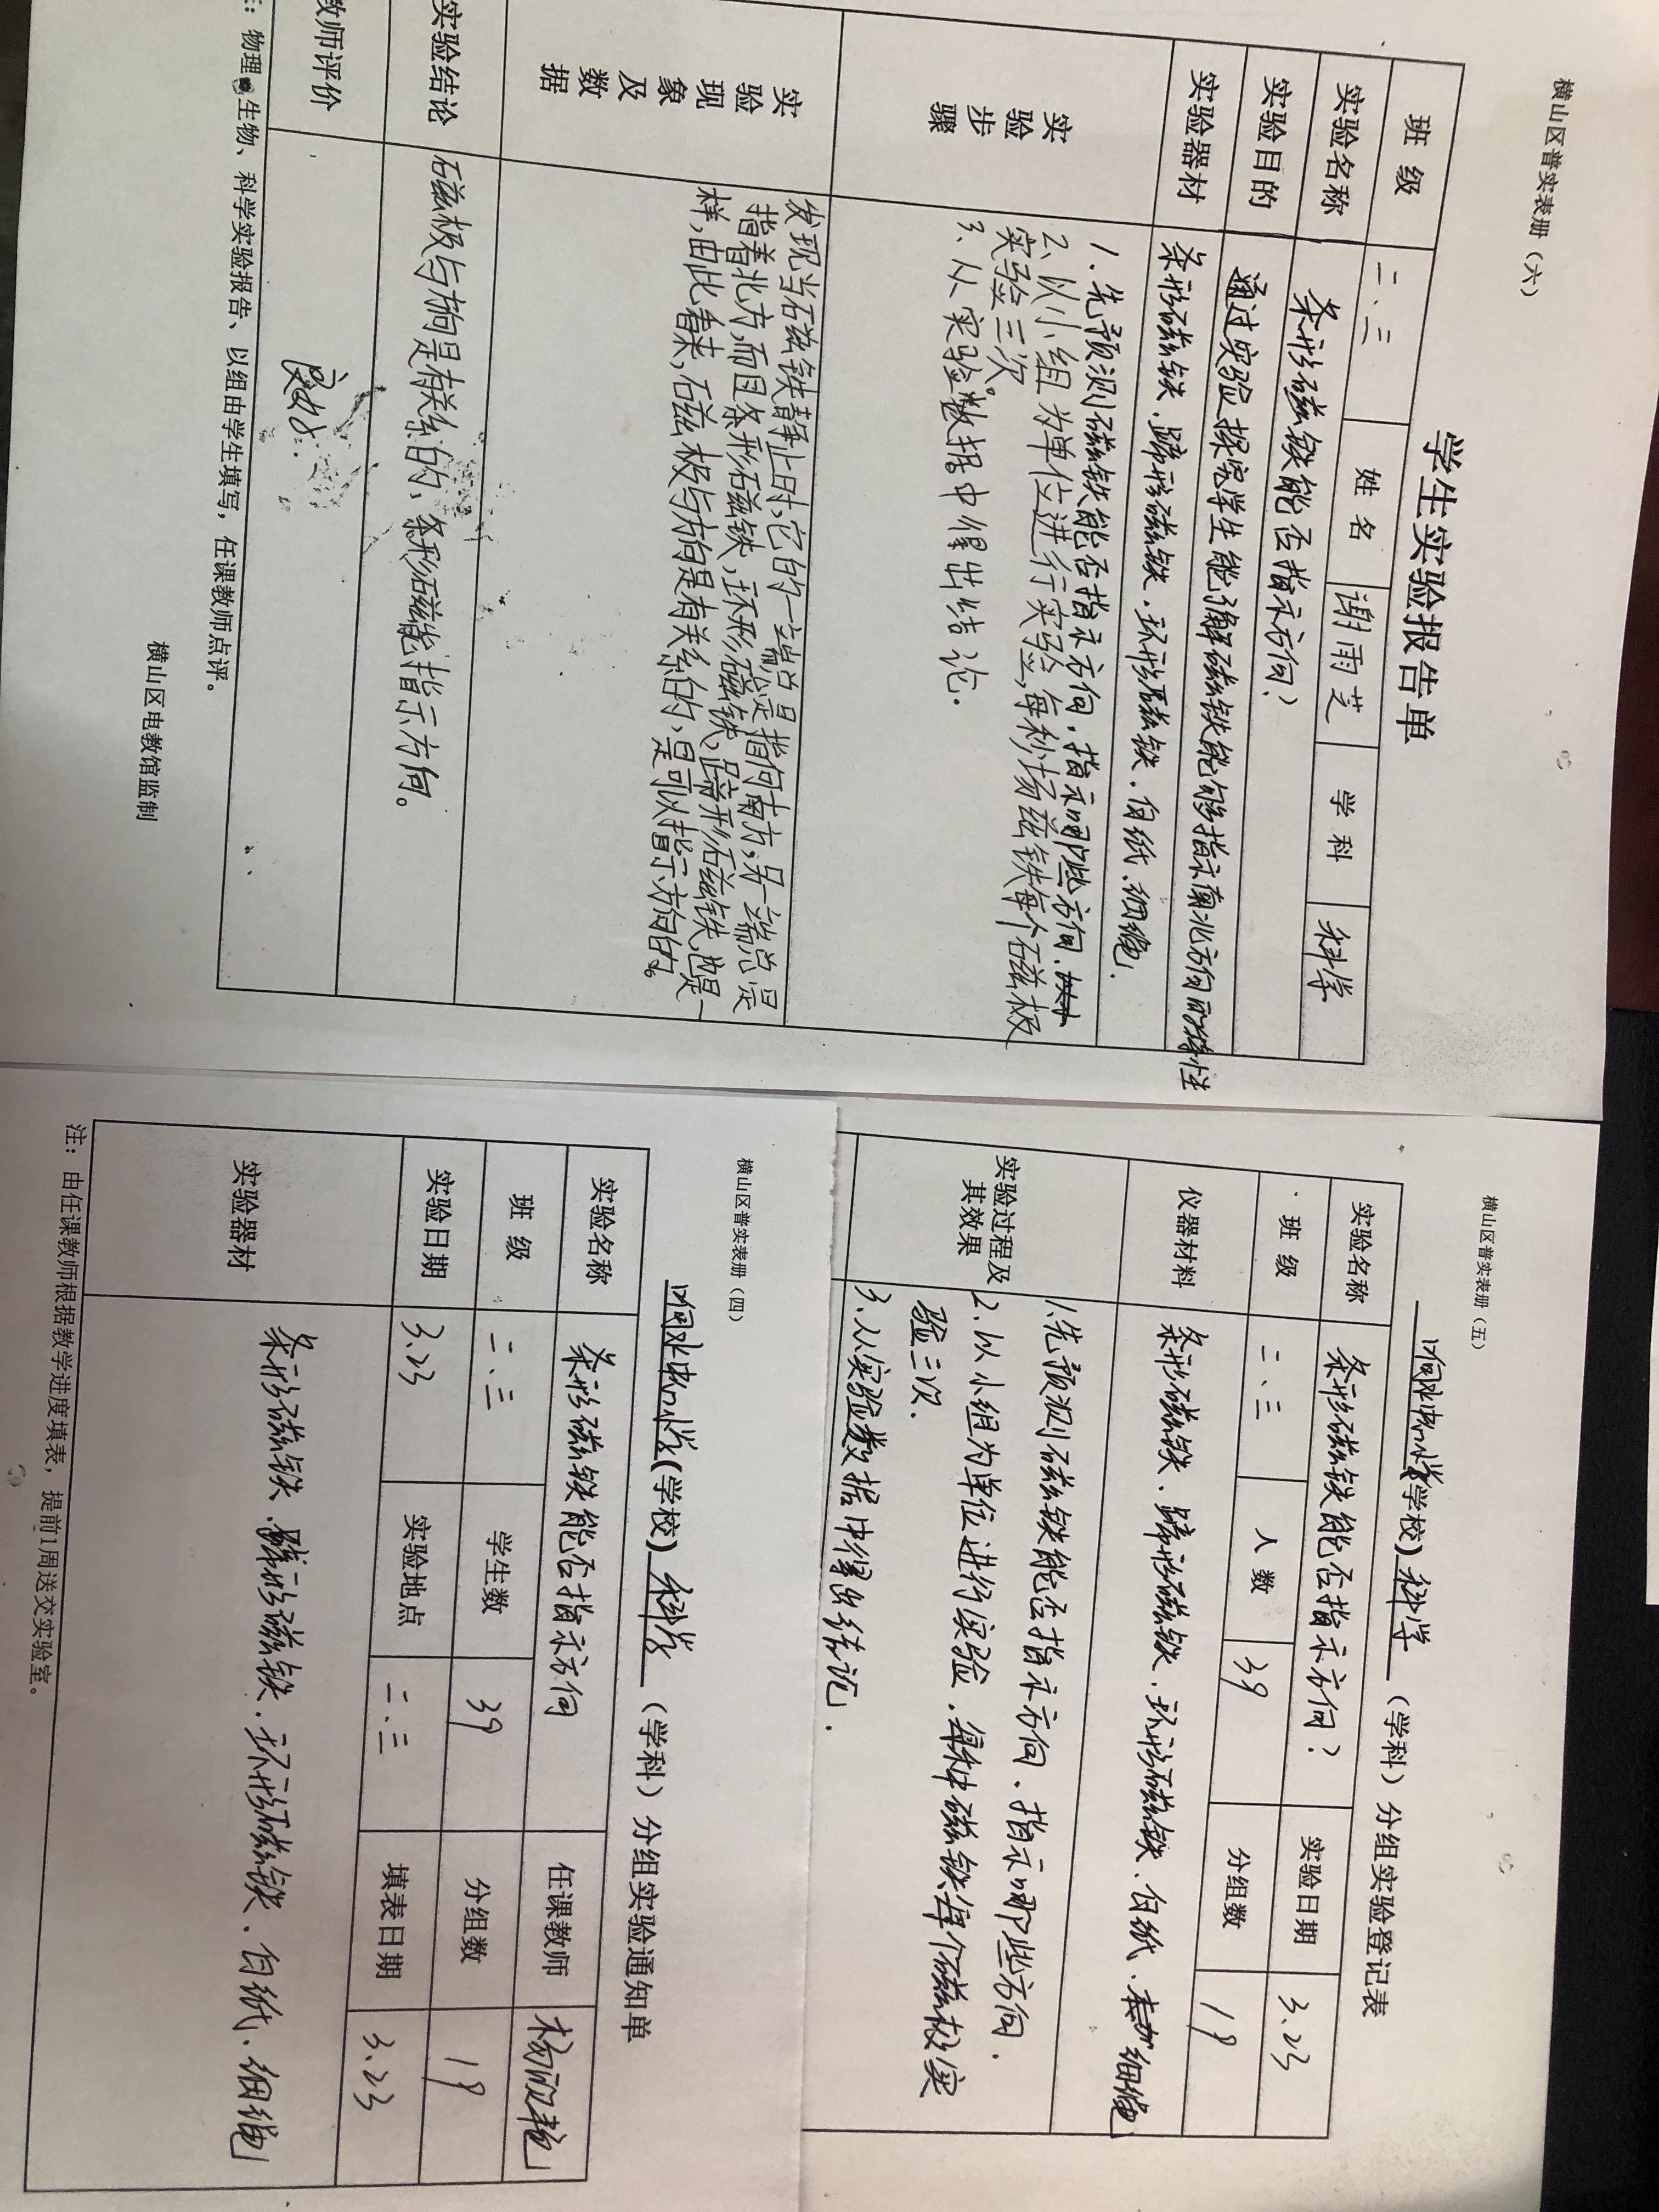 横山区普实表册（六）
学生实验报告单
班 级 二、三 姓 名 谢雨芝 学 科 科学
实验名称 条形磁铁能否指示方向？
实验目的 通过实验探究学生能了解磁铁能够指示南北方向的特性
实验器材 条形磁铁、蹄形磁铁、环形磁铁、白纸、细绳.
实验步骤
1.先预测磁铁能否指示方向,指示哪些方向、
2、以小组为单位进行实验,每种磁铁每个石磁极
实验三次。
3、从实验数据中得出结论.
实验现象及数据
发现当石磁铁静止时,它的一端总是指向南方,另一端总是
指着北方,而且条形石磁铁,环形石磁铁,蹄形石磁铁,也是一
样,由此看来,石磁极与方向是有关系的,是可以指示方向的。
实验结论 石磁极与方向是有关系的,条形石磁能指示方向。
教师评价
注：物理、生物、科学实验报告、以组由学生填写，任课教师点评。
横山区电教馆监制
横山区普实表册（五）
(学校) 科学 （学科）分组实验登记表
实验名称 条形磁铁能否指示方向? 实验日期 3.23
班 级 二、三 人 数 39 分组数 19
仪器材料 条形磁铁、蹄形磁铁、环形磁铁、白纸、细绳
实验过程及其效果
1.先预测磁铁能否指示方向、指示哪些方向.
2.以小组为单位进行实验,每种磁铁每个磁极实
验三次.
3.从实验数据中得出结论.
横山区普实表册（四）
(学校) 科学 （学科）分组实验通知单
实验名称 条形磁铁能否指示方向 任课教师
班 级 二、三 学生数 39 分组数 19
实验日期 3.23 实验地点 二.三 填表日期 3.23
实验器材 条形磁铁、蹄形磁铁、环形磁铁、白纸、细绳
注：由任课教师根据教学进度填表，提前1周送交实验室。